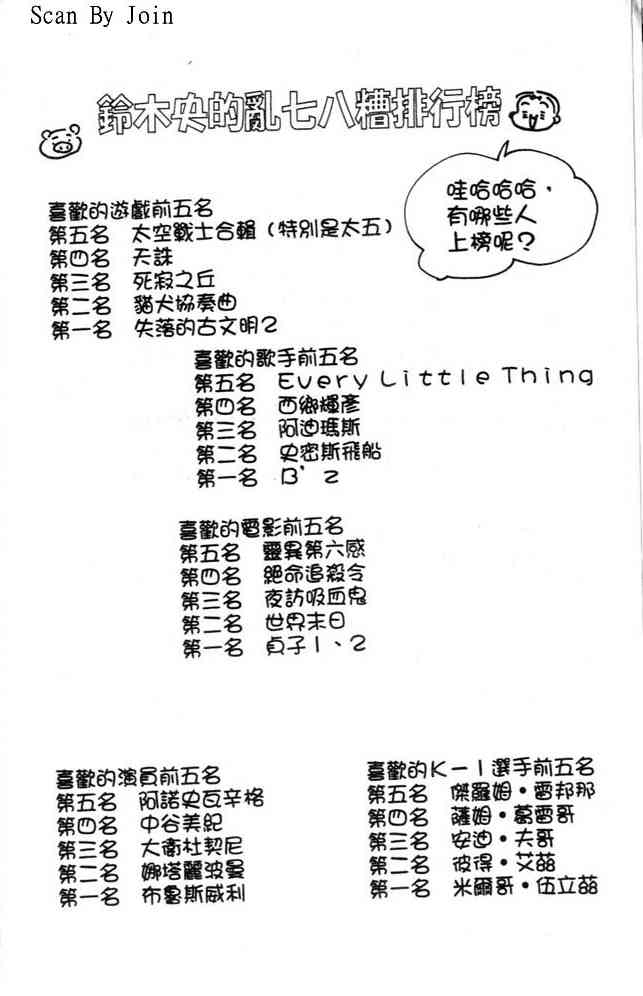 Scan By Join
鈴木央的亂七八糟排行榜
哇哈哈哈，
有哪些人
上榜呢？
喜歡的遊戲前五名
第五名 太空戰士合輯（特別是太五）
第四名 天誅
第三名 死寂之丘
第二名 貓犬協奏曲
第一名 失落的古文明2
喜歡的歌手前五名
第五名 Every Little Thing
第四名 西鄉輝彥
第三名 阿迪瑪斯
第二名 史密斯飛船
第一名 B'z
喜歡的電影前五名
第五名 靈異第六感
第四名 絕命追殺令
第三名 夜訪吸血鬼
第二名 世界末日
第一名 貞子1、2
喜歡的演員前五名
第五名 阿諾史瓦辛格
第四名 中谷美紀
第三名 大衛杜契尼
第二名 娜塔麗波曼
第一名 布魯斯威利
喜歡的K-1選手前五名
第五名 傑羅姆·雷邦那
第四名 薩姆·葛雷哥
第三名 安迪·夫哥
第二名 彼得·艾茲
第一名 米爾哥·伍立茲